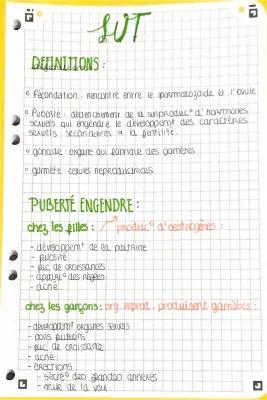 SVT
DEFINITIONS :
° Fécondation : rencontre entre le spermatozoïde et l'ovule
° Puberté : déclenchement de la surproduc° d'hormones
sexuels qui engendre le développemt des caractères
sexuels secondaires a la fertilité.
° gonade : organe qui fabrique des gamètes
° gamète : cellules reproductrices
PUBERTÉ ENGENDRE :
chez les filles : produc° d'oestrogènes :
- développemt de la poitrine
- pilosité
- pic de croissances
- appari° des règles
- acné
chez les garçons : org. reprod. produisent gamètes :
- développmt organes sexuels
- poils pubiens
- pic de croissance
- acné
- érections
- sécré° des glandes annexes
- mue de la voix